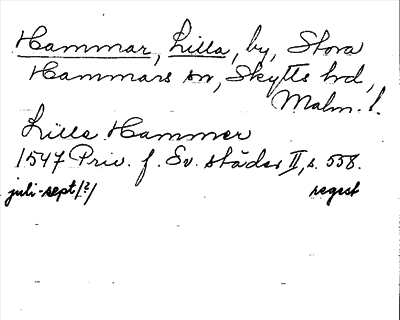 Hammar, Lilla, by, Stora
Hammars sn, Skytts hd,
Malm. l.
Lille Hammer
1547 Priv. f. Sv. städer II, s. 558.
juli-sept/?/ regest